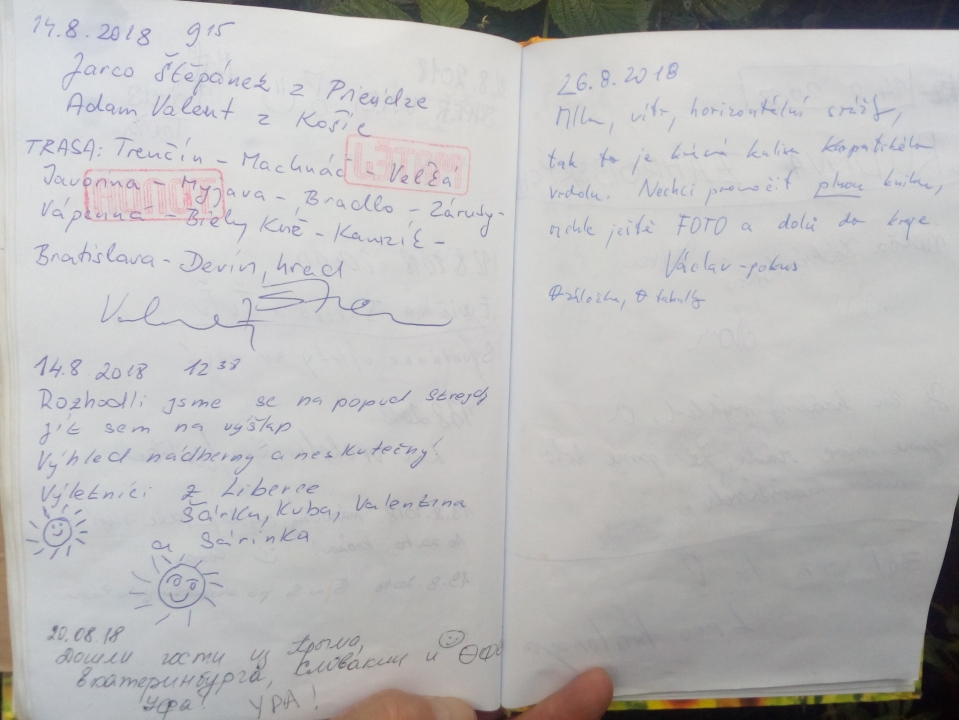 14.8.2018 9 15
Jarco Štěpánek z Prievidze
Adam Valent z Košíc
TRASA: Trenčín - Machnáč - Veľká
Javorina - Myjava - Bradlo - Záruby -
Vápenná - Biely Kríž - Kamzík -
Bratislava - Devín, hrad
14.8 2018 12 38
Rozhodli jsme se na popud strejdy
jít sem na výšlap
Výhled nádherný a neskutečný!
Výletníci z Liberce
Šárka, Kuba, Valentina
a Sárinka
20.08.18
Дошли гости из Крыма,
Екатеринбурга, Словакии и
Уфа! УРА!
26.8.2018
Mlha, vítr, horizontální srážky,
tak to je krásná kulisa Karpatského
vrcholu. Nechci promočit knihu,
rychle ještě FOTO a dolů do kraje
Václav - pokus